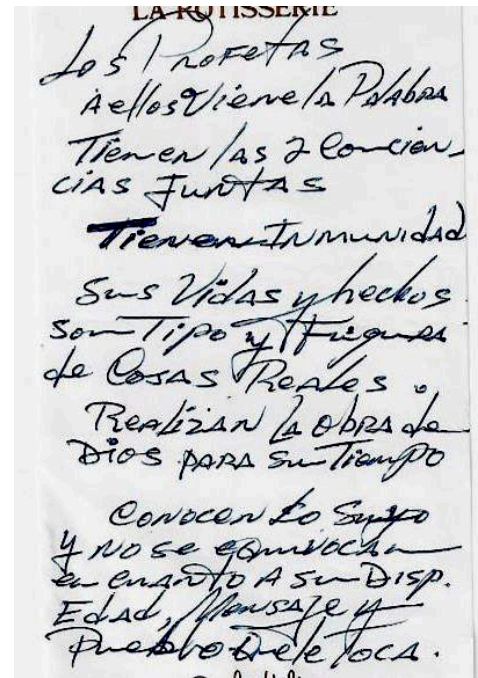 LA ROTISSERIE
Los Profetas
A ellos Viene la Palabra
Tienen las 2 Concien-
cias Juntas
Tienen Inmunidad
Sus Vidas y hechos
son Tipo y Figura
de Cosas Reales.
Realizan la obra de
Dios para su Tiempo
Conocen Lo Suyo
y no se equivocan
en cuanto A su Disp.
Edad, Mensaje y
Pueblo que le Toca.